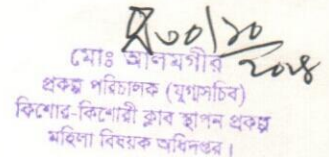 ৩০/১০/২০২৪
মোঃ আলমগীর
প্রকল্প পরিচালক (যুগ্মসচিব)
কিশোর-কিশোরী ক্লাব স্থাপন প্রকল্প
মহিলা বিষয়ক অধিদপ্তর।